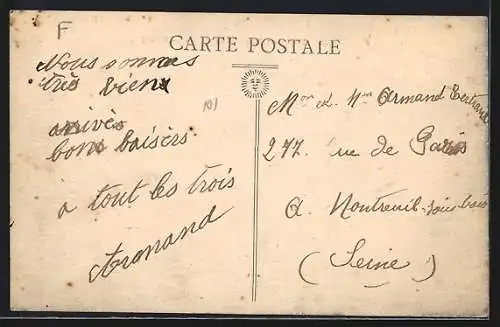 F
CARTE POSTALE
Nous sommes
très bien
arrivés
bons baisers
a tout les trois
Armand
101
Mon et Mme Armand Bertrand
277 rue de Paris
A Montreuil-sous-bois
(Seine)